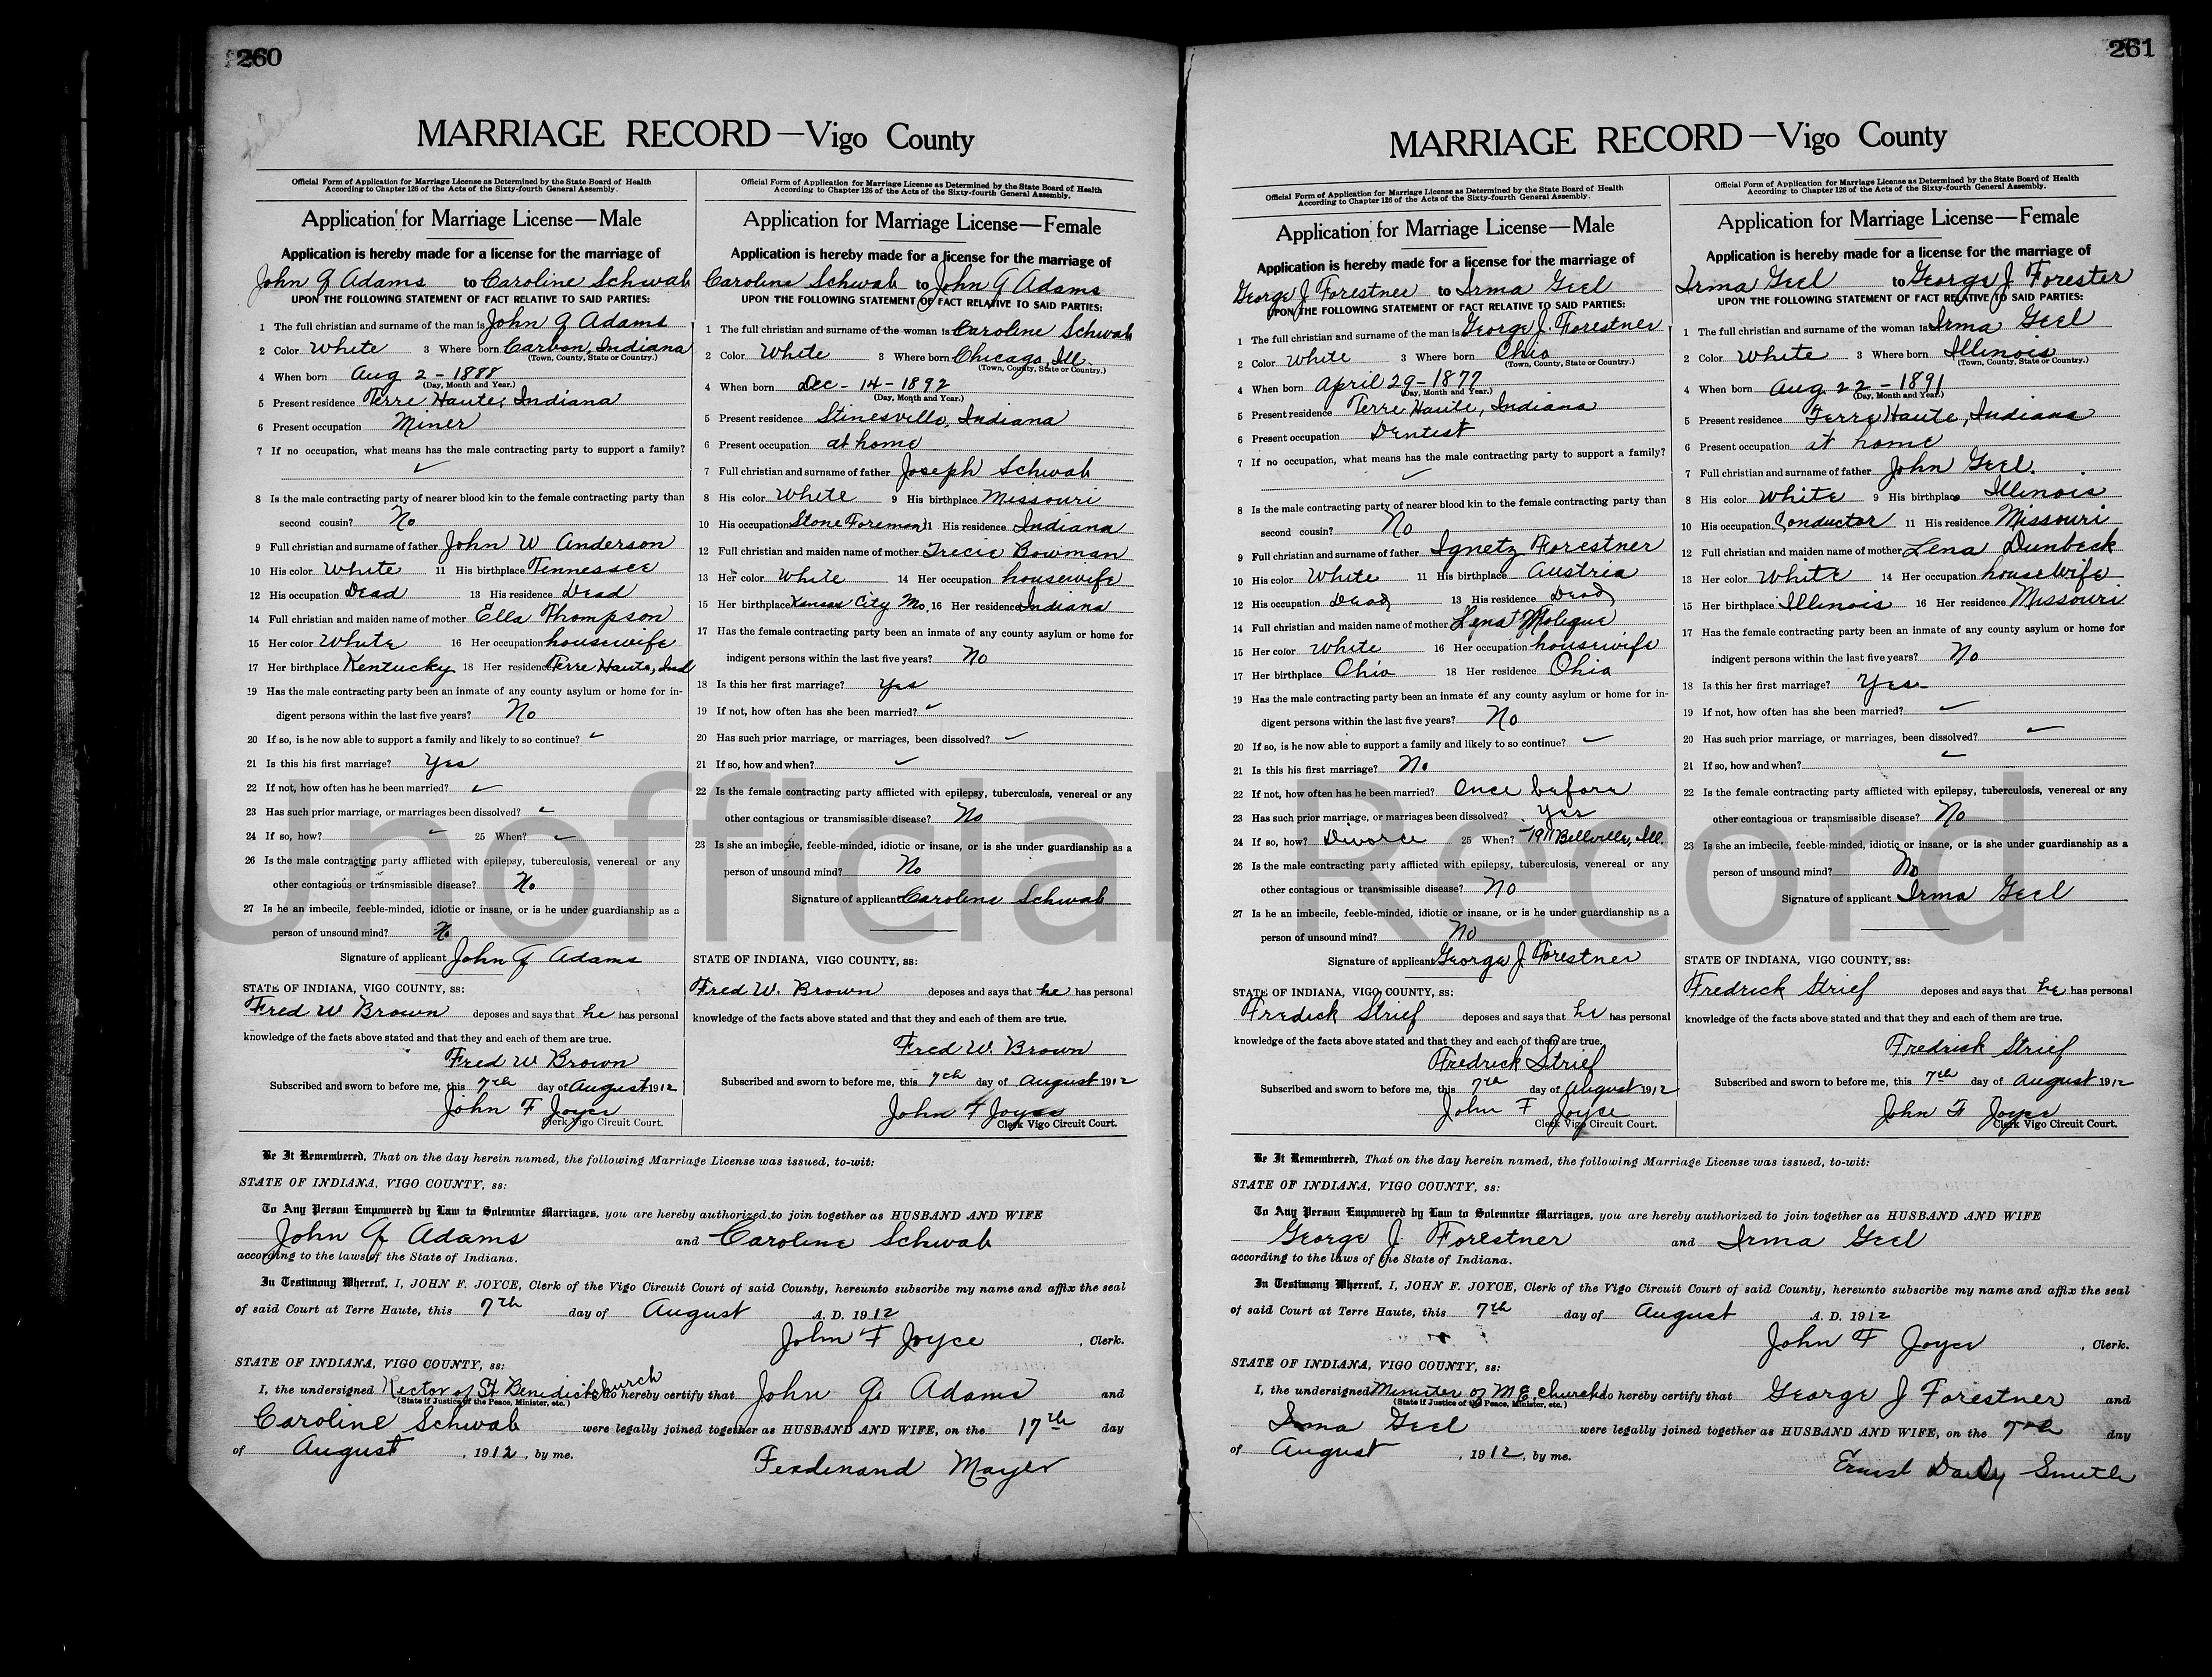 260
MARRIAGE RECORD—Vigo County
Official Form of Application for Marriage License as Determined by the State Board of Health
According to Chapter 126 of the Acts of the Sixty-fourth General Assembly.
Application for Marriage License—Male
Application is hereby made for a license for the marriage of
John Q Adams to Caroline Schwab
UPON THE FOLLOWING STATEMENT OF FACT RELATIVE TO SAID PARTIES:
1 The full christian and surname of the man is John Q Adams
2 Color White 3 Where born Carbon, Indiana
(Town, County, State or Country.)
4 When born Aug 2 - 1888
(Day, Month and Year.)
5 Present residence Terre Haute, Indiana
6 Present occupation Miner
7 If no occupation, what means has the male contracting party to support a family?
✓
8 Is the male contracting party of nearer blood kin to the female contracting party than
second cousin? No
9 Full christian and surname of father John W Anderson
10 His color White 11 His birthplace Tennessee
12 His occupation Dead 13 His residence Dead
14 Full christian and maiden name of mother Ella Thompson
15 Her color White 16 Her occupation housewife
17 Her birthplace Kentucky 18 Her residence Terre Haute, Ind
19 Has the male contracting party been an inmate of any county asylum or home for in-
digent persons within the last five years? No
20 If so, is he now able to support a family and likely to so continue? ✓
21 Is this his first marriage? Yes
22 If not, how often has he been married? ✓
23 Has such prior marriage, or marriages been dissolved? ✓
24 If so, how? ✓ 25 When? ✓
26 Is the male contracting party afflicted with epilepsy, tuberculosis, venereal or any
other contagious or transmissible disease? No
27 Is he an imbecile, feeble-minded, idiotic or insane, or is he under guardianship as a
person of unsound mind? No
Signature of applicant John Q Adams
STATE OF INDIANA, VIGO COUNTY, ss:
Fred W Brown deposes and says that he has personal
knowledge of the facts above stated and that they and each of them are true.
Fred W Brown
Subscribed and sworn to before me, this 7th day of August 1912
John F Joyce
Clerk Vigo Circuit Court.
Official Form of Application for Marriage License as Determined by the State Board of Health
According to Chapter 126 of the Acts of the Sixty-fourth General Assembly.
Application for Marriage License—Female
Application is hereby made for a license for the marriage of
Caroline Schwab to John Q Adams
UPON THE FOLLOWING STATEMENT OF FACT RELATIVE TO SAID PARTIES:
1 The full christian and surname of the woman is Caroline Schwab
2 Color White 3 Where born Chicago, Ill.
(Town, County, State or Country.)
4 When born Dec - 14 - 1892
(Day, Month and Year.)
5 Present residence Stinesville, Indiana
6 Present occupation at home
7 Full christian and surname of father Joseph Schwab
8 His color White 9 His birthplace Missouri
10 His occupation Stone Foreman 11 His residence Indiana
12 Full christian and maiden name of mother Trecie Bowman
13 Her color White 14 Her occupation housewife
15 Her birthplace Kansas City Mo. 16 Her residence Indiana
17 Has the female contracting party been an inmate of any county asylum or home for
indigent persons within the last five years? No
18 Is this her first marriage? Yes
19 If not, how often has she been married? ✓
20 Has such prior marriage, or marriages, been dissolved? ✓
21 If so, how and when? ✓
22 Is the female contracting party afflicted with epilepsy, tuberculosis, venereal or any
other contagious or transmissible disease? No
23 Is she an imbecile, feeble-minded, idiotic or insane, or is she under guardianship as a
person of unsound mind? No
Signature of applicant Caroline Schwab
STATE OF INDIANA, VIGO COUNTY, ss:
Fred W. Brown deposes and says that he has personal
knowledge of the facts above stated and that they and each of them are true.
Fred W. Brown
Subscribed and sworn to before me, this 7th day of August 1912
John F Joyce
Clerk Vigo Circuit Court.
Be It Remembered, That on the day herein named, the following Marriage License was issued, to-wit:
STATE OF INDIANA, VIGO COUNTY, ss:
To Any Person Empowered by Law to Solemnize Marriages, you are hereby authorized to join together as HUSBAND AND WIFE
John Q Adams and Caroline Schwab
according to the laws of the State of Indiana.
In Testimony Whereof, I, JOHN F. JOYCE, Clerk of the Vigo Circuit Court of said County, hereunto subscribe my name and affix the seal
of said Court at Terre Haute, this 7th day of August A. D. 1912
John F Joyce, Clerk.
STATE OF INDIANA, VIGO COUNTY, ss:
I, the undersigned Rector of St Benedict church do hereby certify that John Q Adams and
(State if Justice of the Peace, Minister, etc.)
Caroline Schwab were legally joined together as HUSBAND AND WIFE, on the 17th day
of August, 1912, by me.
Ferdinand Mayer
261
MARRIAGE RECORD—Vigo County
Official Form of Application for Marriage License as Determined by the State Board of Health
According to Chapter 126 of the Acts of the Sixty-fourth General Assembly.
Application for Marriage License—Male
Application is hereby made for a license for the marriage of
George J Forestner to Irma Geel
UPON THE FOLLOWING STATEMENT OF FACT RELATIVE TO SAID PARTIES:
1 The full christian and surname of the man is George J. Forestner
2 Color White 3 Where born Ohio
(Town, County, State or Country.)
4 When born April 29 - 1877
(Day, Month and Year.)
5 Present residence Terre Haute, Indiana
6 Present occupation Dentist
7 If no occupation, what means has the male contracting party to support a family?
✓
8 Is the male contracting party of nearer blood kin to the female contracting party than
second cousin? No
9 Full christian and surname of father Ignetz Forestner
10 His color White 11 His birthplace Austria
12 His occupation Dead 13 His residence Dead
14 Full christian and maiden name of mother Lena
15 Her color White 16 Her occupation housewife
17 Her birthplace Ohio 18 Her residence Ohio
19 Has the male contracting party been an inmate of any county asylum or home for in-
digent persons within the last five years? No
20 If so, is he now able to support a family and likely to so continue? ✓
21 Is this his first marriage? No
22 If not, how often has he been married? Once before
23 Has such prior marriage, or marriages been dissolved? Yes
24 If so, how? Divorce 25 When? 1911 Bellville, Ill.
26 Is the male contracting party afflicted with epilepsy, tuberculosis, venereal or any
other contagious or transmissible disease? No
27 Is he an imbecile, feeble-minded, idiotic or insane, or is he under guardianship as a
person of unsound mind? No
Signature of applicant George J Forestner
STATE OF INDIANA, VIGO COUNTY, ss:
Fredick Strief deposes and says that he has personal
knowledge of the facts above stated and that they and each of them are true.
Fredrick Strief
Subscribed and sworn to before me, this 7th day of August 1912
John F Joyce
Clerk Vigo Circuit Court.
Official Form of Application for Marriage License as Determined by the State Board of Health
According to Chapter 126 of the Acts of the Sixty-fourth General Assembly.
Application for Marriage License—Female
Application is hereby made for a license for the marriage of
Irma Geel to George J Forester
UPON THE FOLLOWING STATEMENT OF FACT RELATIVE TO SAID PARTIES:
1 The full christian and surname of the woman is Irma Geel
2 Color White 3 Where born Illinois
(Town, County, State or Country.)
4 When born Aug 22 - 1891
(Day, Month and Year.)
5 Present residence Terre Haute, Indiana
6 Present occupation at home
7 Full christian and surname of father John Geel.
8 His color White 9 His birthplace Illinois
10 His occupation Conductor 11 His residence Missouri
12 Full christian and maiden name of mother Lena Dunbeck
13 Her color White 14 Her occupation housewife
15 Her birthplace Illinois 16 Her residence Missouri
17 Has the female contracting party been an inmate of any county asylum or home for
indigent persons within the last five years? No
18 Is this her first marriage? Yes-
19 If not, how often has she been married? ✓
20 Has such prior marriage, or marriages, been dissolved? ✓
21 If so, how and when? ✓
22 Is the female contracting party afflicted with epilepsy, tuberculosis, venereal or any
other contagious or transmissible disease? No
23 Is she an imbecile, feeble-minded, idiotic or insane, or is she under guardianship as a
person of unsound mind? No
Signature of applicant Irma Geel
STATE OF INDIANA, VIGO COUNTY, ss:
Fredrick Strief deposes and says that he has personal
knowledge of the facts above stated and that they and each of them are true.
Fredrick Strief
Subscribed and sworn to before me, this 7th day of August 1912
John F Joyce
Clerk Vigo Circuit Court.
Be It Remembered, That on the day herein named, the following Marriage License was issued, to-wit:
STATE OF INDIANA, VIGO COUNTY, ss:
To Any Person Empowered by Law to Solemnize Marriages, you are hereby authorized to join together as HUSBAND AND WIFE
George J. Forestner and Irma Geel
according to the laws of the State of Indiana.
In Testimony Whereof, I, JOHN F. JOYCE, Clerk of the Vigo Circuit Court of said County, hereunto subscribe my name and affix the seal
of said Court at Terre Haute, this 7th day of August A. D. 1912
John F Joyce, Clerk.
STATE OF INDIANA, VIGO COUNTY, ss:
I, the undersigned Minister of M E church do hereby certify that George J Forestner and
(State if Justice of the Peace, Minister, etc.)
Irma Geel were legally joined together as HUSBAND AND WIFE, on the 7th day
of August, 1912, by me.
Ernest Daily Smith
Unofficial Record